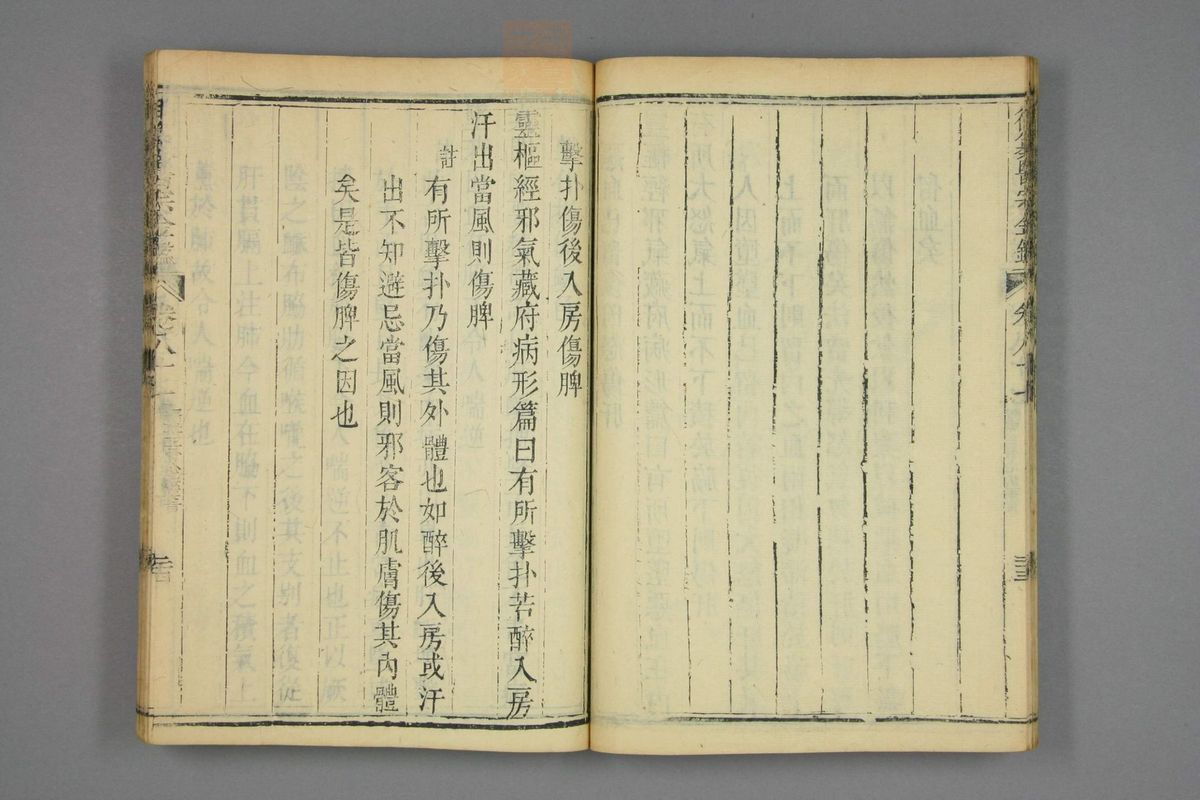 御纂醫宗金鑑
擊扑傷後入房傷脾
靈樞經邪氣藏府病形篇曰有所擊扑若醉入房
汗出當風則傷脾
註有所擊扑乃傷其外體也如醉後入房或汗
出不知避忌當風則邪客於肌膚傷其內體
矣是皆傷脾之因也